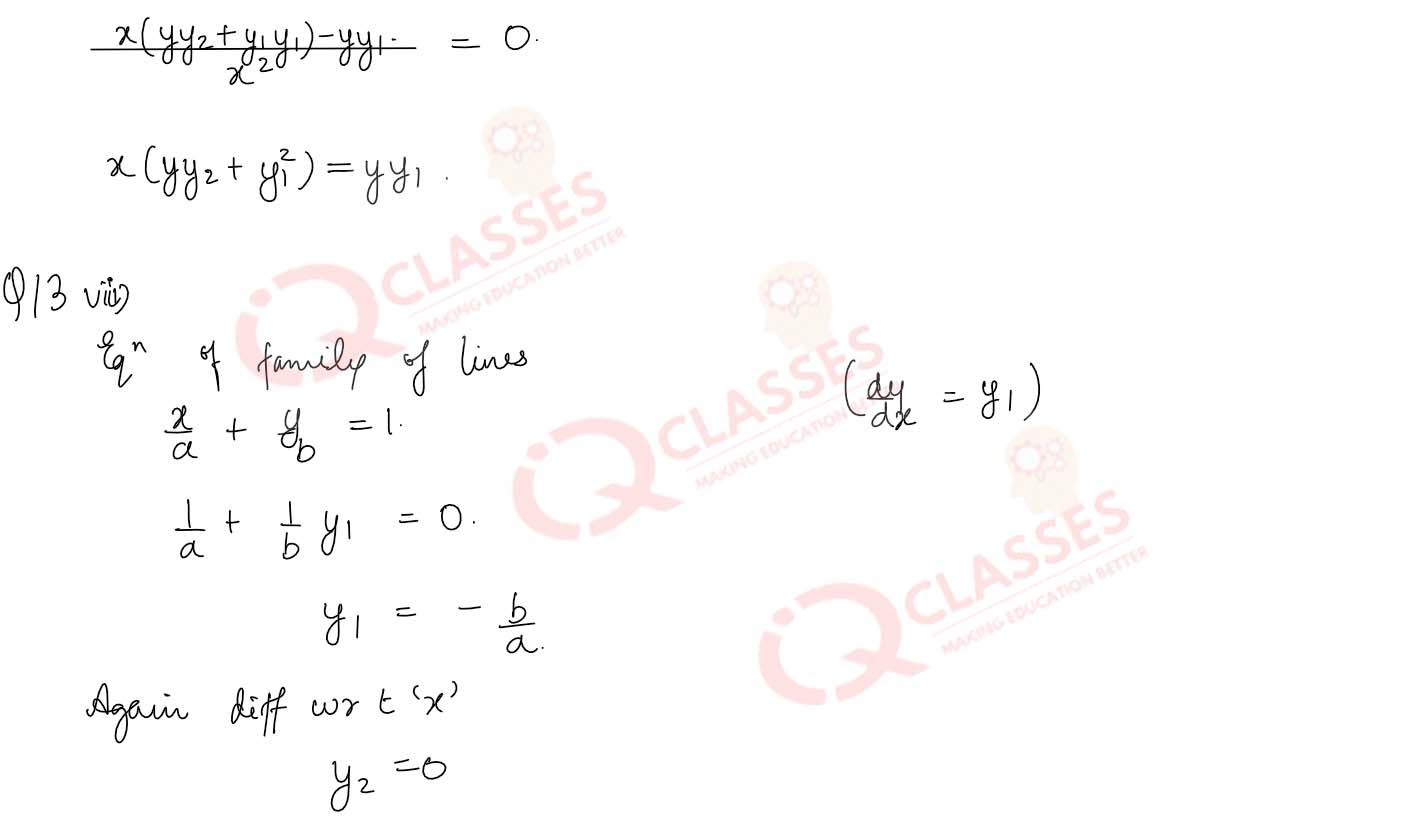 x(yy₂+y₁y₁)-yy₁. / x² = 0.
x(yy₂+ y₁²)=yy₁.
Q13 viii)
Eqⁿ of family of lines
x/a + y/b = 1.
(dy/dx = y₁)
1/a + 1/b y₁ = 0.
y₁ = - b/a.
Again diff wr t 'x'
y₂ =0
iQ CLASSES
MAKING EDUCATION BETTER
iQ CLASSES
MAKING EDUCATION BETTER
iQ CLASSES
MAKING EDUCATION BETTER